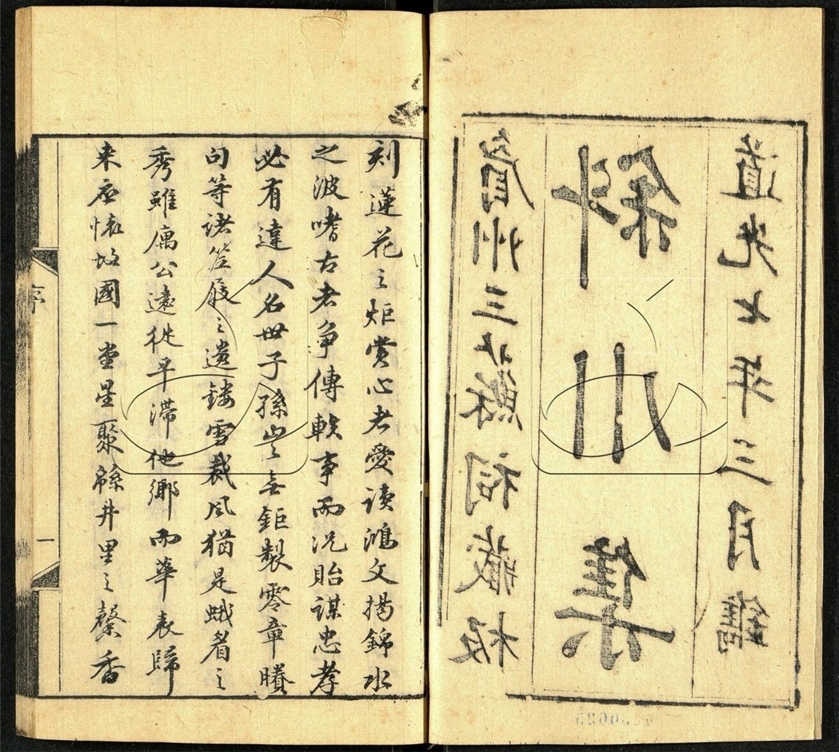 道光七年三月鐫
斜川集
眉州三蘇祠藏板
刻蓮花之炬賞心者愛讀鴻文揚錦水
之波嗜古者爭傳軼事而況貽謀忠孝
必有達人名世子孫豈無鉅製零章賸
句等諸笠屐之遺鏤雪裁風猶是蛾眉之
秀雖庽公遠徙早滯他鄉而華表歸
来應懷故國一堂星聚緜井里之馨香
序
一